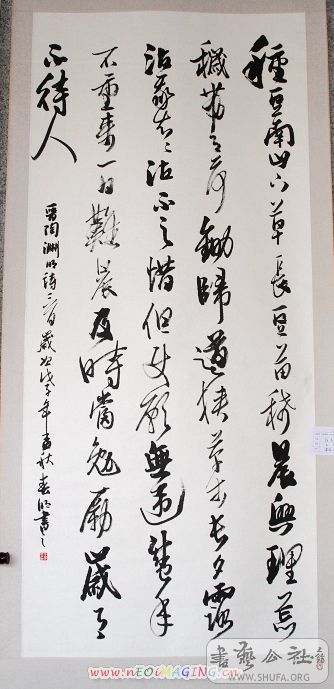 種豆南山下草長豆苗稀晨興理荒
穢帶月荷鋤歸道狹草木長夕露
沾我衣〻沾不足惜但使願無違盛年
不重来一日難晨及時當勉勵歲月
不待人
晋陶渊明詩二首歲次戊子年孟秋春明書之
www.NEOiMAGING.cn
書藝公社
WWW.SHUFA.ORG